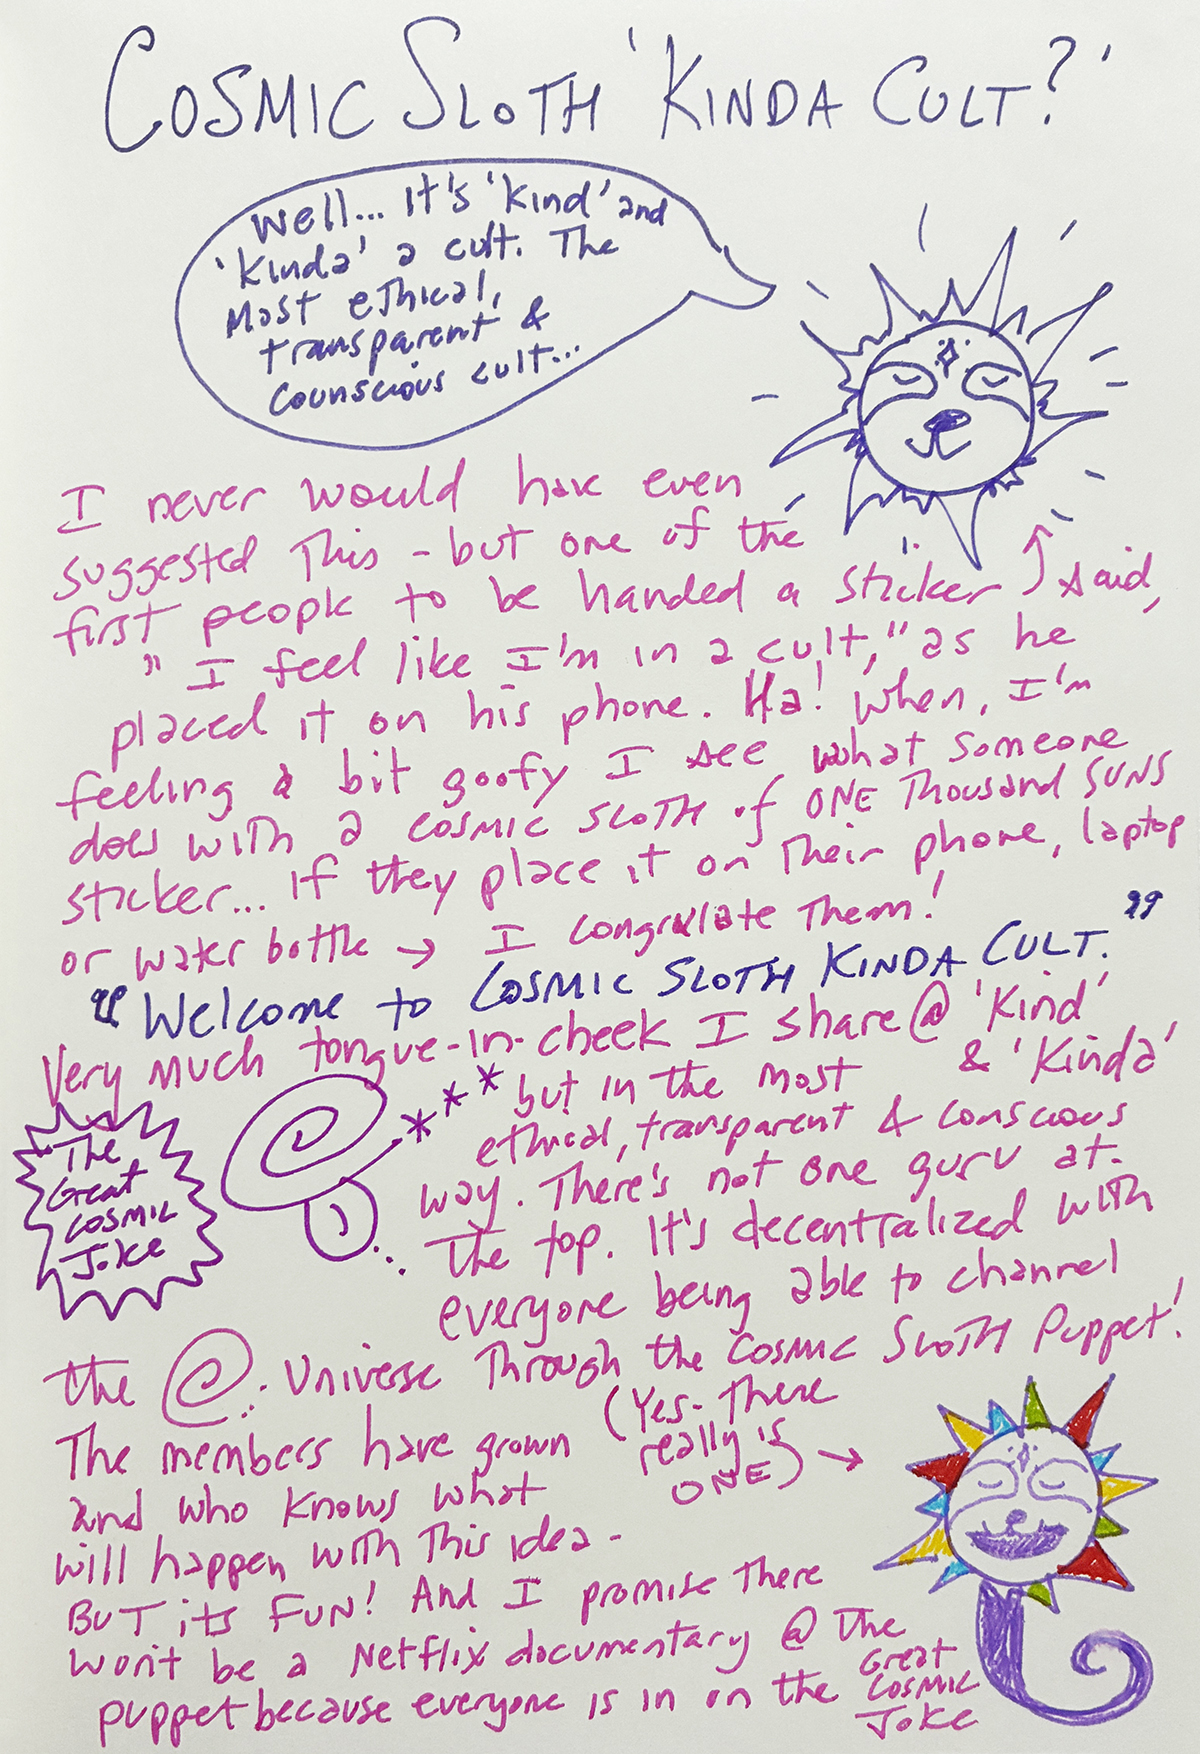 COSMIC SLOTH 'KINDA CULT?'
Well... It's 'kind' and
'kinda' a cult. The
Most ethical,
transparent &
counscious cult...
I never would have even
suggested This - but one of the
first people to be handed a sticker ↑ said,
" I feel like I'm in a cult," as he
placed it on his phone. Ha! When, I'm
feeling a bit goofy I see what someone
does with a COSMIC SLOTH of ONE Thousand SUNS
sticker... If they place it on their phone, laptop
or water bottle → I congralate Them!
"Welcome to COSMIC SLOTH KINDA CULT."
Very much tongue-in-cheek I share @ 'Kind'
& 'Kinda'
but in the most
ethical, transparent & conscious
way. There's not one guru at
The top. It's decentralized with
everyone being able to channel
The
Great
COSMIC
Joke
the @ Universe Through the COSMIC SLOTH Puppet!
(Yes- There
really is
ONE) →
The members have grown
and who knows what
will happen with This idea -
BUT its FUN! And I promise There
won't be a Netflix documentary @ The
puppet because everyone is in on the Great
COSMIC
JOKE